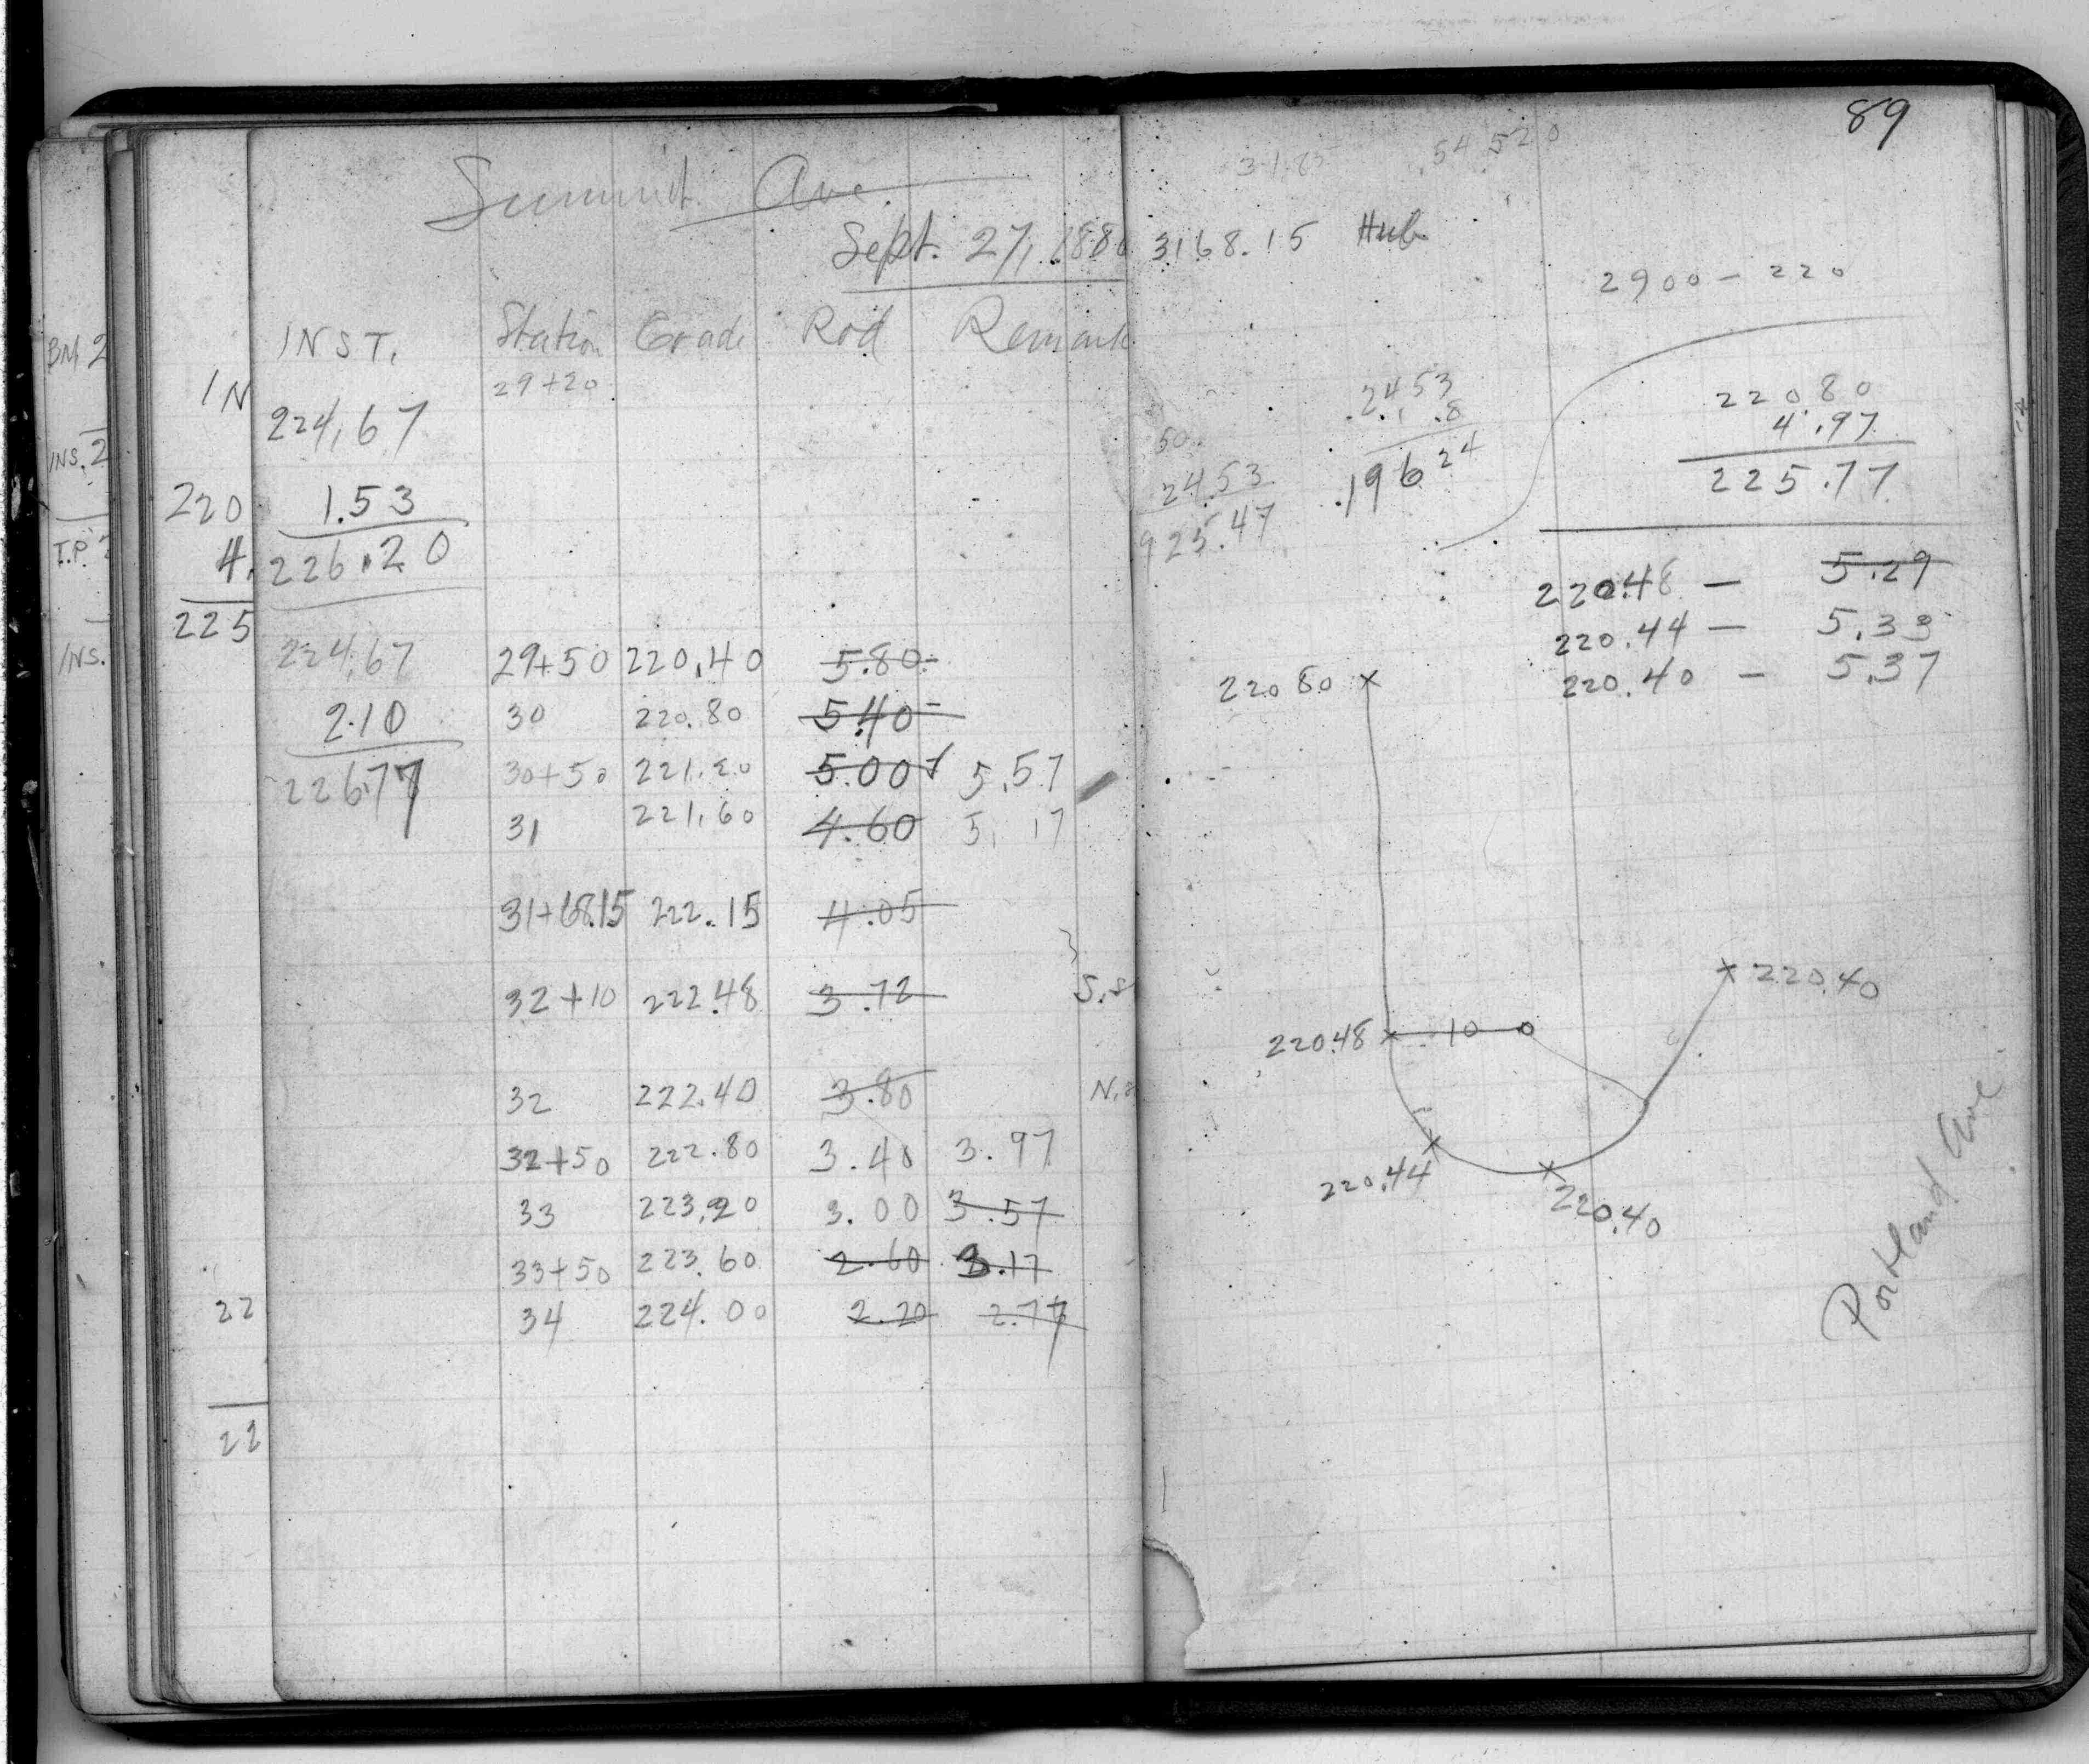 Summit Ave
Sept. 27, 188
INST. Station Grade Rod Remark
29+20
224.67
1.53
226.20
224.67 29+50 220.40 5.80
2.10 30 220.80 5.40
226.77 30+50 221.20 5.00 5.57
31 221.60 4.60 5.17
31+68.15 222.15 4.05
32+10 222.48 3.72 S.
32 222.40 3.80 N.
32+50 222.80 3.40 3.97
33 223.20 3.00 3.57
33+50 223.60 2.60 3.17
34 224.00 2.20 2.77
BM 2
INS. 2
T.P.
INS.
IN
220
4.
225
22
22
89
54 520
3168.15 Hub
2900 - 220
2453
.8
.19624
50
24.53
925.47
220 80
4.97
225.77
220.48 — 5.29
220.44 — 5.33
220.40 — 5.37
220 80
220.40
220.48 10
220.44
220.40
Portland Ave